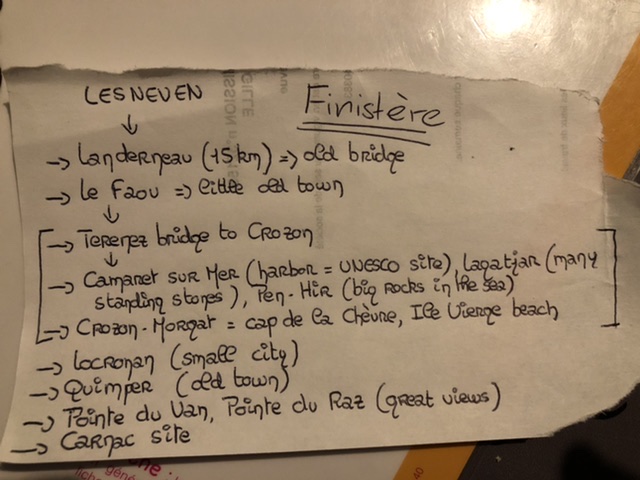 LESNEVEN
Finistère
↓
→ Landerneau (15 km) => old bridge
→ le Faou => little old town
↓
→ Terenez bridge to Crozon
↓
→ Camaret sur Mer (harbor = UNESCO site), Lagatjar (many
standing stones), Pen-Hir (big rocks in the sea)
→ Crozon-Morgat = cap de la Chèvre, Ile Vierge beach
→ Locronan (small city)
→ Quimper (old town)
→ Pointe du Van, Pointe du Raz (great views)
→ Carnac site